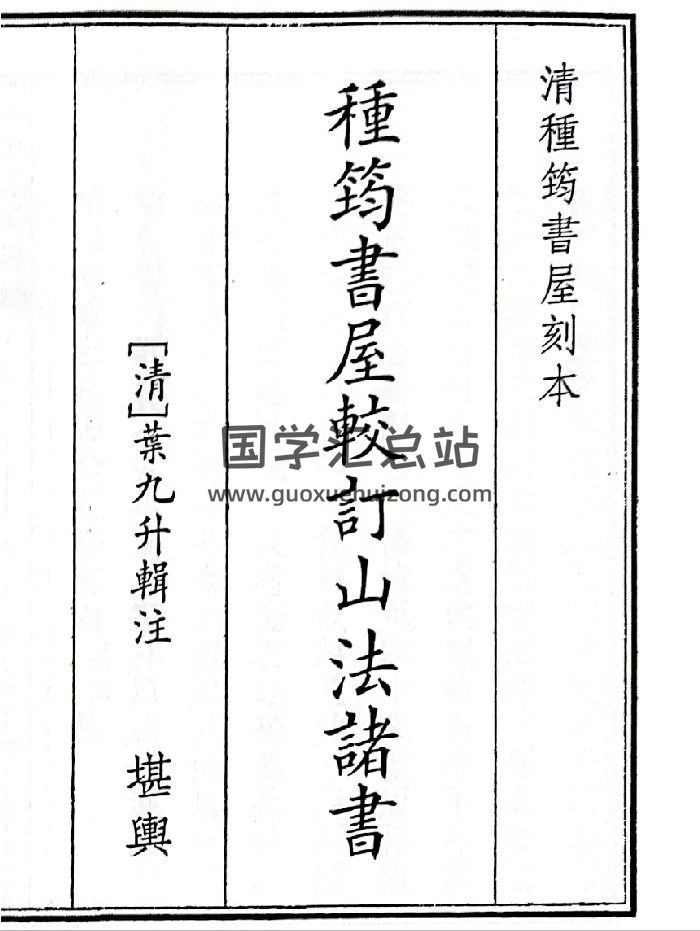 清種筠書屋刻本
種筠書屋較訂山法諸書
［清］葉九升輯注 堪輿
国学汇总站
www.guoxuehuizong.com